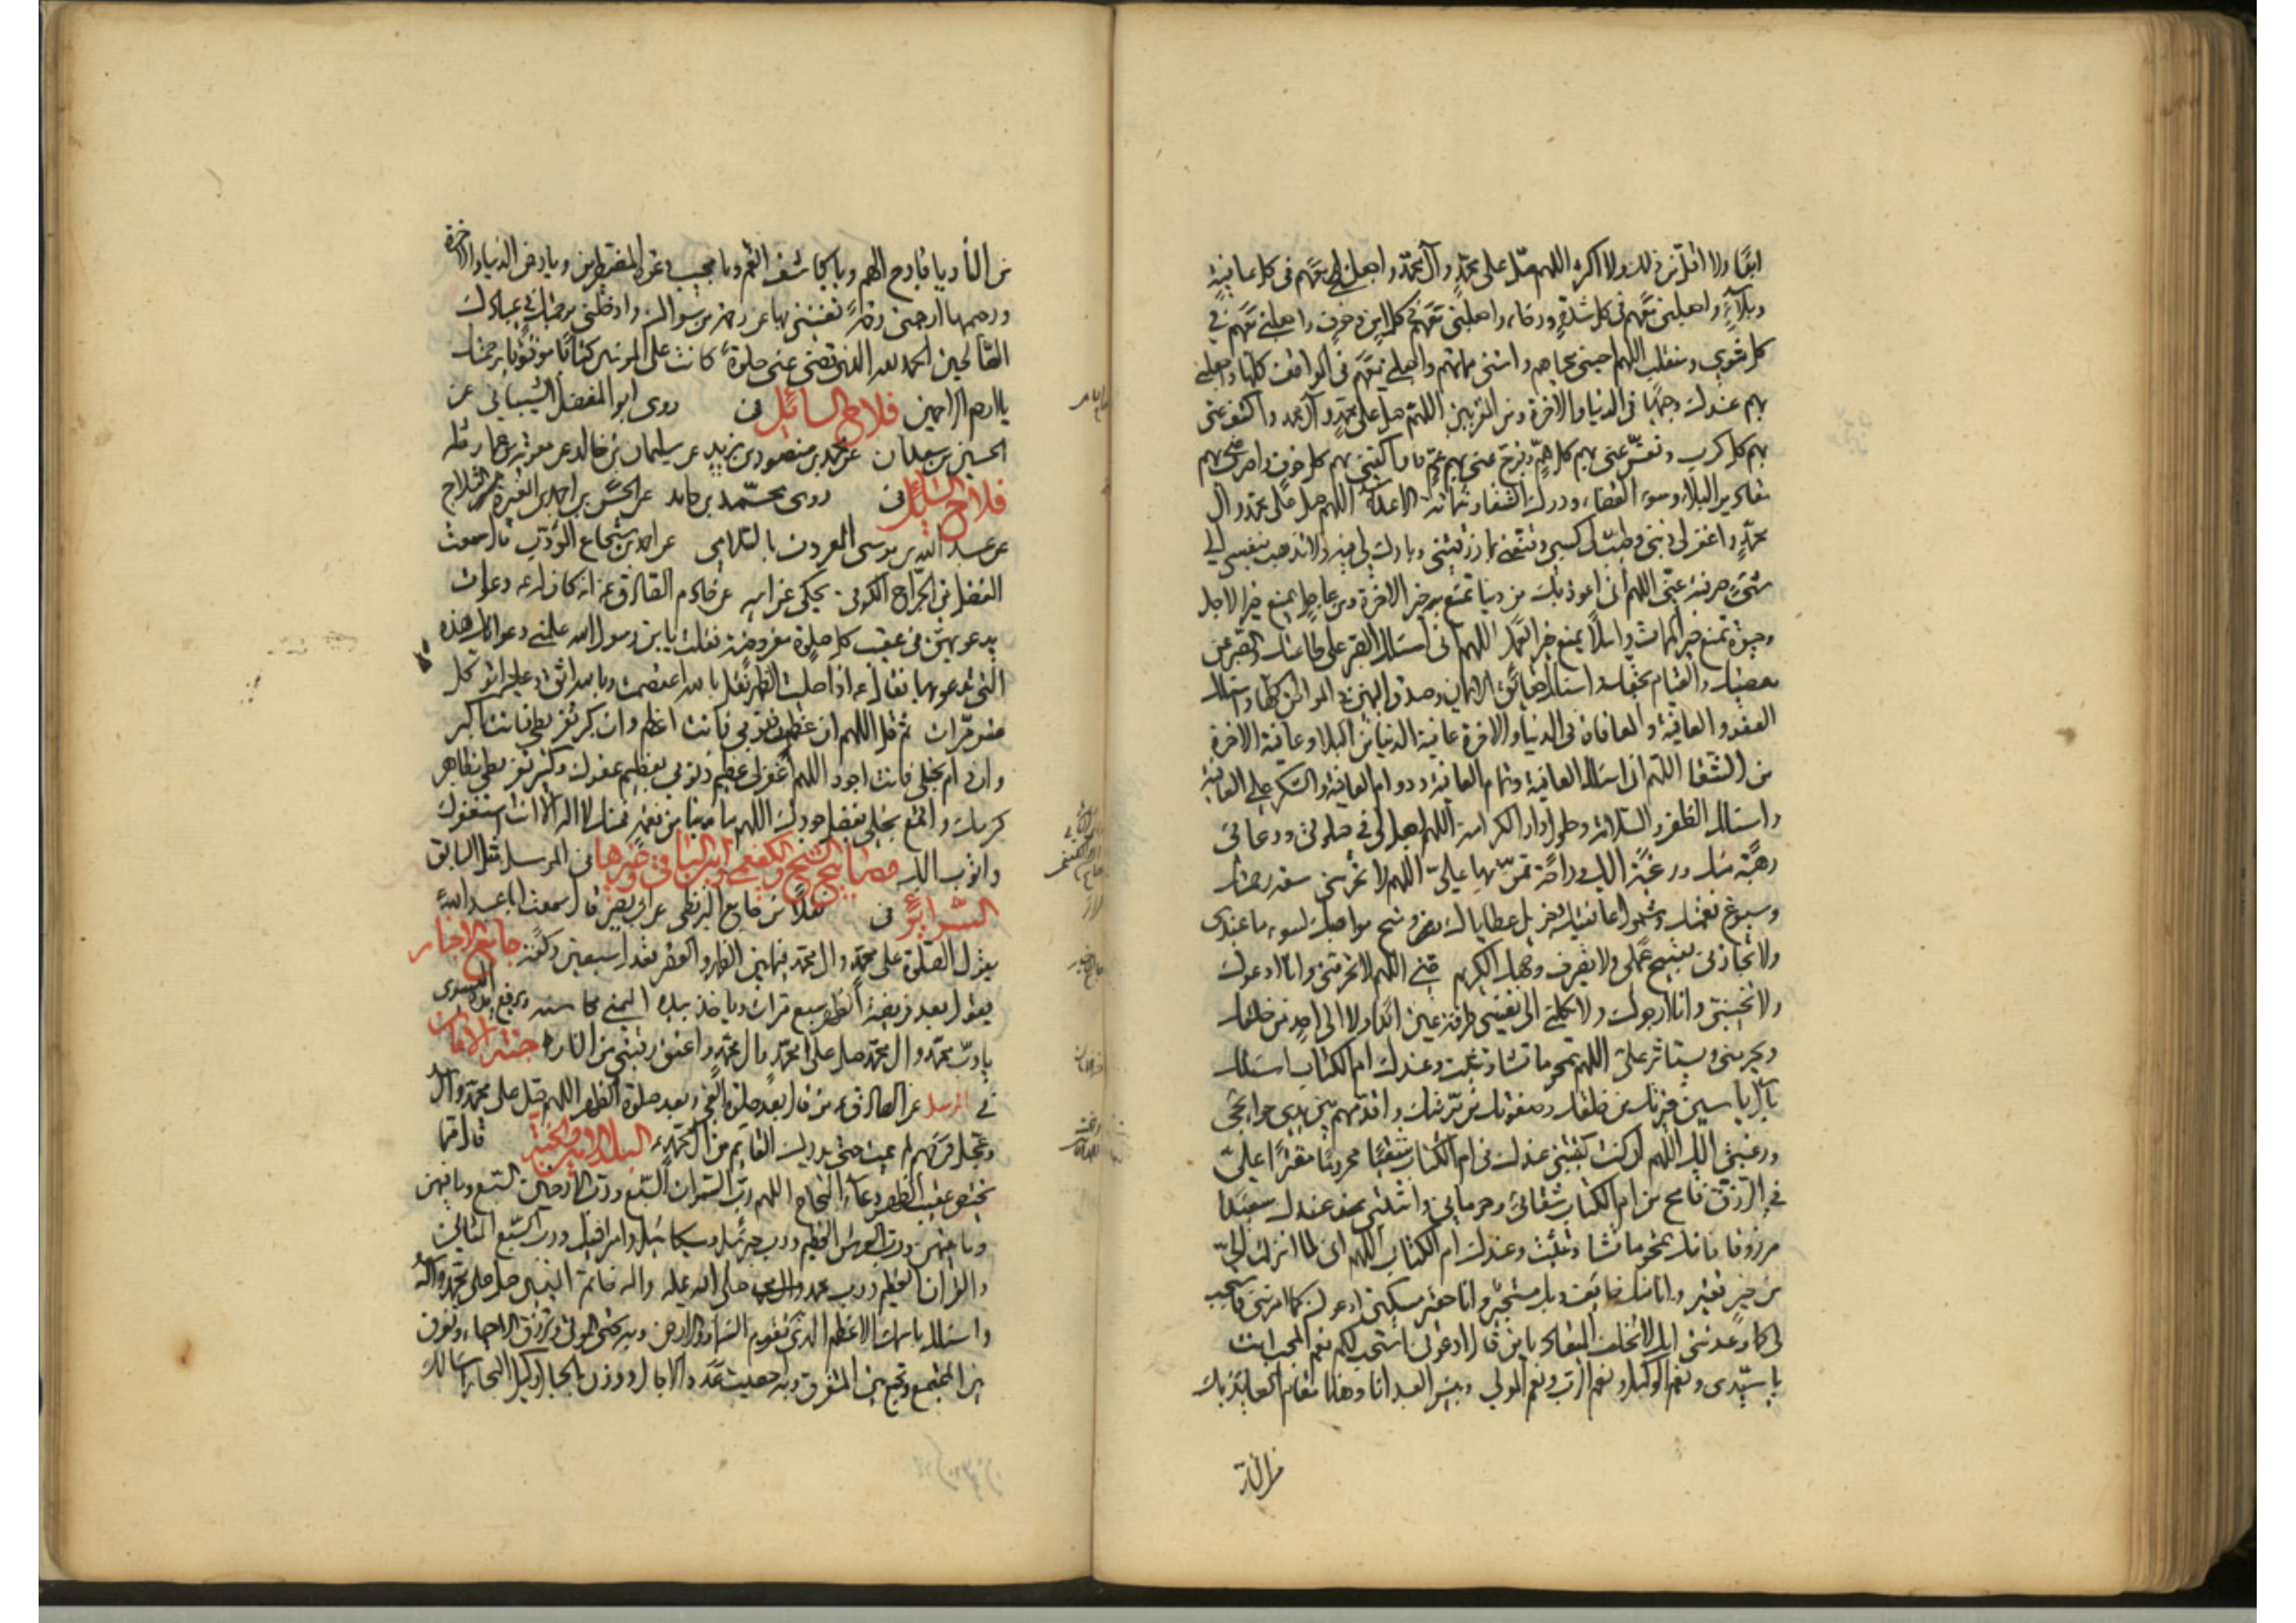 ابدا ولا اقل من ذلك ولا اكثر اللهم صل على محمد وآل محمد واجعلني معهم في كل عافية
وبلاء واجعلني معهم في كل شدة ورخاء واجعلني معهم في كل امن وخوف واجعلني معهم في
كل مثوى ومنقلب اللهم احيني محياهم وامتني مماتهم واجعلني معهم في المواقف كلها واجعلني
بهم عندك وجيها في الدنيا والاخرة ومن المقربين اللهم صل على محمد وآل محمد واكشف عني
بهم كل كرب ونفس عني بهم كل هم وفرج عني بهم كل غم واكفني بهم كل خوف واصرف عني بهم
مقادير البلاء وسوء القضاء ودرك الشقاء وشماتة الاعداء اللهم صل على محمد وال
محمد واغفر لي ذنبي وطيب لي كسبي وقنعني بما رزقتني وبارك لي فيه ولا تذهب بنفسي الى
شيء صرفته عني اللهم اني اعوذ بك من دنيا تمنع خير الاخرة ومن عاجل يمنع خير الاجل
وحيوة تمنع خير الممات وامل يمنع خير العمل اللهم اني اسئلك الصبر على طاعتك والصبر عن
معصيتك والقيام بحقك واسئلك حقائق الايمان وصدق اليقين في المواطن كلها واسئلك
العفو والعافية والمعافاة في الدنيا والاخرة عافية الدنيا من البلاء وعافية الاخرة
من الشقا اللهم اني اسئلك العافية وتمام العافية ودوام العافية والشكر على العافية
واسئلك الظفر والسلامة وحلول دار الكرامة اللهم اجعل لي في صلوتي ودعائي
رهبة منك ورغبة اليك وراحة تمن بها علي اللهم لا تحرمني سعة رحمتك
وسبوغ نعمتك وشمول عافيتك وجزيل عطاياك ومنح مواهبك لسوء ما عندي
ولا تجازني بقبيح عملي ولا تصرف وجهك الكريم عني اللهم لا تحرمني وانا ادعوك
ولا تخيبني وانا ارجوك ولا تكلني الى نفسي طرفة عين ابدا ولا الى احد من خلقك
فيحرمني ويستاثر علي اللهم تمحو ما تشاء وتثبت وعندك ام الكتاب اسئلك
بآل ياسين خيرتك من خلقك وصفوتك من بريتك واقدمهم بين يدي حوائجي
ورغبتي اليك اللهم ان كنت كتبتني عندك في ام الكتاب شقيا محروما مقترا علي
في الرزق فامح من ام الكتاب شقائي وحرماني واثبتني عندك سعيدا
مرزوقا فانك تمحو ما تشاء وتثبت وعندك ام الكتاب اللهم اني لما انزلت الي
من خير فقير وانا منك خائف وبك مستجير وانا حقير مسكين ادعوك كما امرتني فاستجب
لي كما وعدتني انك لا تخلف الميعاد يا من قال ادعوني استجب لكم نعم المجيب انت
يا سيدي ونعم الوكيل ونعم الرب ونعم المولى وبئس العبد انا وهذا مقام العائذ بك
من النار
من النار يا فارج الهم ويا كاشف الغم ويا مجيب دعوة المضطرين ويا رحمن الدنيا والاخرة
ورحيمهما ارحمني رحمة تغنيني بها عن رحمة من سواك وادخلني برحمتك في عبادك
الصالحين الحمد لله الذي قضى عني صلوة كانت على المؤمنين كتابا موقوتا برحمتك
يا ارحم الراحمين فلاح السائل في روى ابو المفضل الشيباني عن
الحسين بن سعدان عن محمد بن منصور بن يزيد عن سليمان بن خالد عن معوية بن عمار مثله
فلاح السائل في روى محمد بن حامد عن الحسن بن احمد بن المغيرة
عن عبد الله بن موسى المعروف بالسلامي عن احمد بن شجاع المؤدب قال سمعت
الفضل بن الجراح الكوفي يحكي عن ابيه عن خادم الصادق ع انه كان له دعوات
يدعو بهن في عقيب كل صلوة مفروضة فقلت يا بن رسول الله علمني دعواتك هذه
التي تدعو بها فقال ع اذا صليت الظهر فقل بالله اعتصمت وبالله اثق وعليه اتوكل
عشر مرات ثم قل اللهم ان عظمت ذنوبي فانت اعظم وان كبر تفريطي فانت اكبر
وان دام بخلي فانت اجود اللهم اغفر لي عظيم ذنوبي بعظيم عفوك وكثير تفريطي بظاهر
كرمك واقمع بخلي بفضل جودك اللهم ما بنا من نعمة فمنك لا اله الا انت استغفرك
واتوب اليك مصابيح الشيخ والكفعمي وابن الباقي وغيرها في المرسل مثل السابق
السرائر في نقلا من جامع البزنطي عن ابي بصير قال سمعت ابا عبد الله ع
يقول الصلوة على محمد وال محمد فيما بين الظهر والعصر تعدل سبعين ركعة جامع الاخبار
يقول بعد فريضة الظهر سبع مرات وياخذ بيده اليمنى محاسنه ويرفع يده اليسرى
يا رب محمد وال محمد صل على محمد وال محمد واعتق رقبتي من النار جنة الامان
في المرسل عن الصادق ع من قال بعد صلوة الفجر وبعد صلوة الظهر اللهم صل على محمد وآل محمد
وعجل فرجهم لم يمت حتى يدرك القايم من ال محمد ع البلد الامين والجنة قال مما
يختص عقيب الظهر دعاء النجاح اللهم رب السموات السبع ورب الارضين السبع وما فيهن
وما بينهن ورب العرش العظيم ورب جبرئيل وميكائيل واسرافيل ورب السبع المثاني
والقران العظيم ورب محمد صلى الله عليه واله خاتم النبيين صل على محمد وآله
واسئلك باسمك الاعظم الذي تقوم السماء والارض وبه تحيي الموتى وترزق الاحياء وتفرق
بين المجتمع وتجمع بين المتفرق وبه احصيت عدد الاجال ووزن الجبال وكيل البحار اسالك